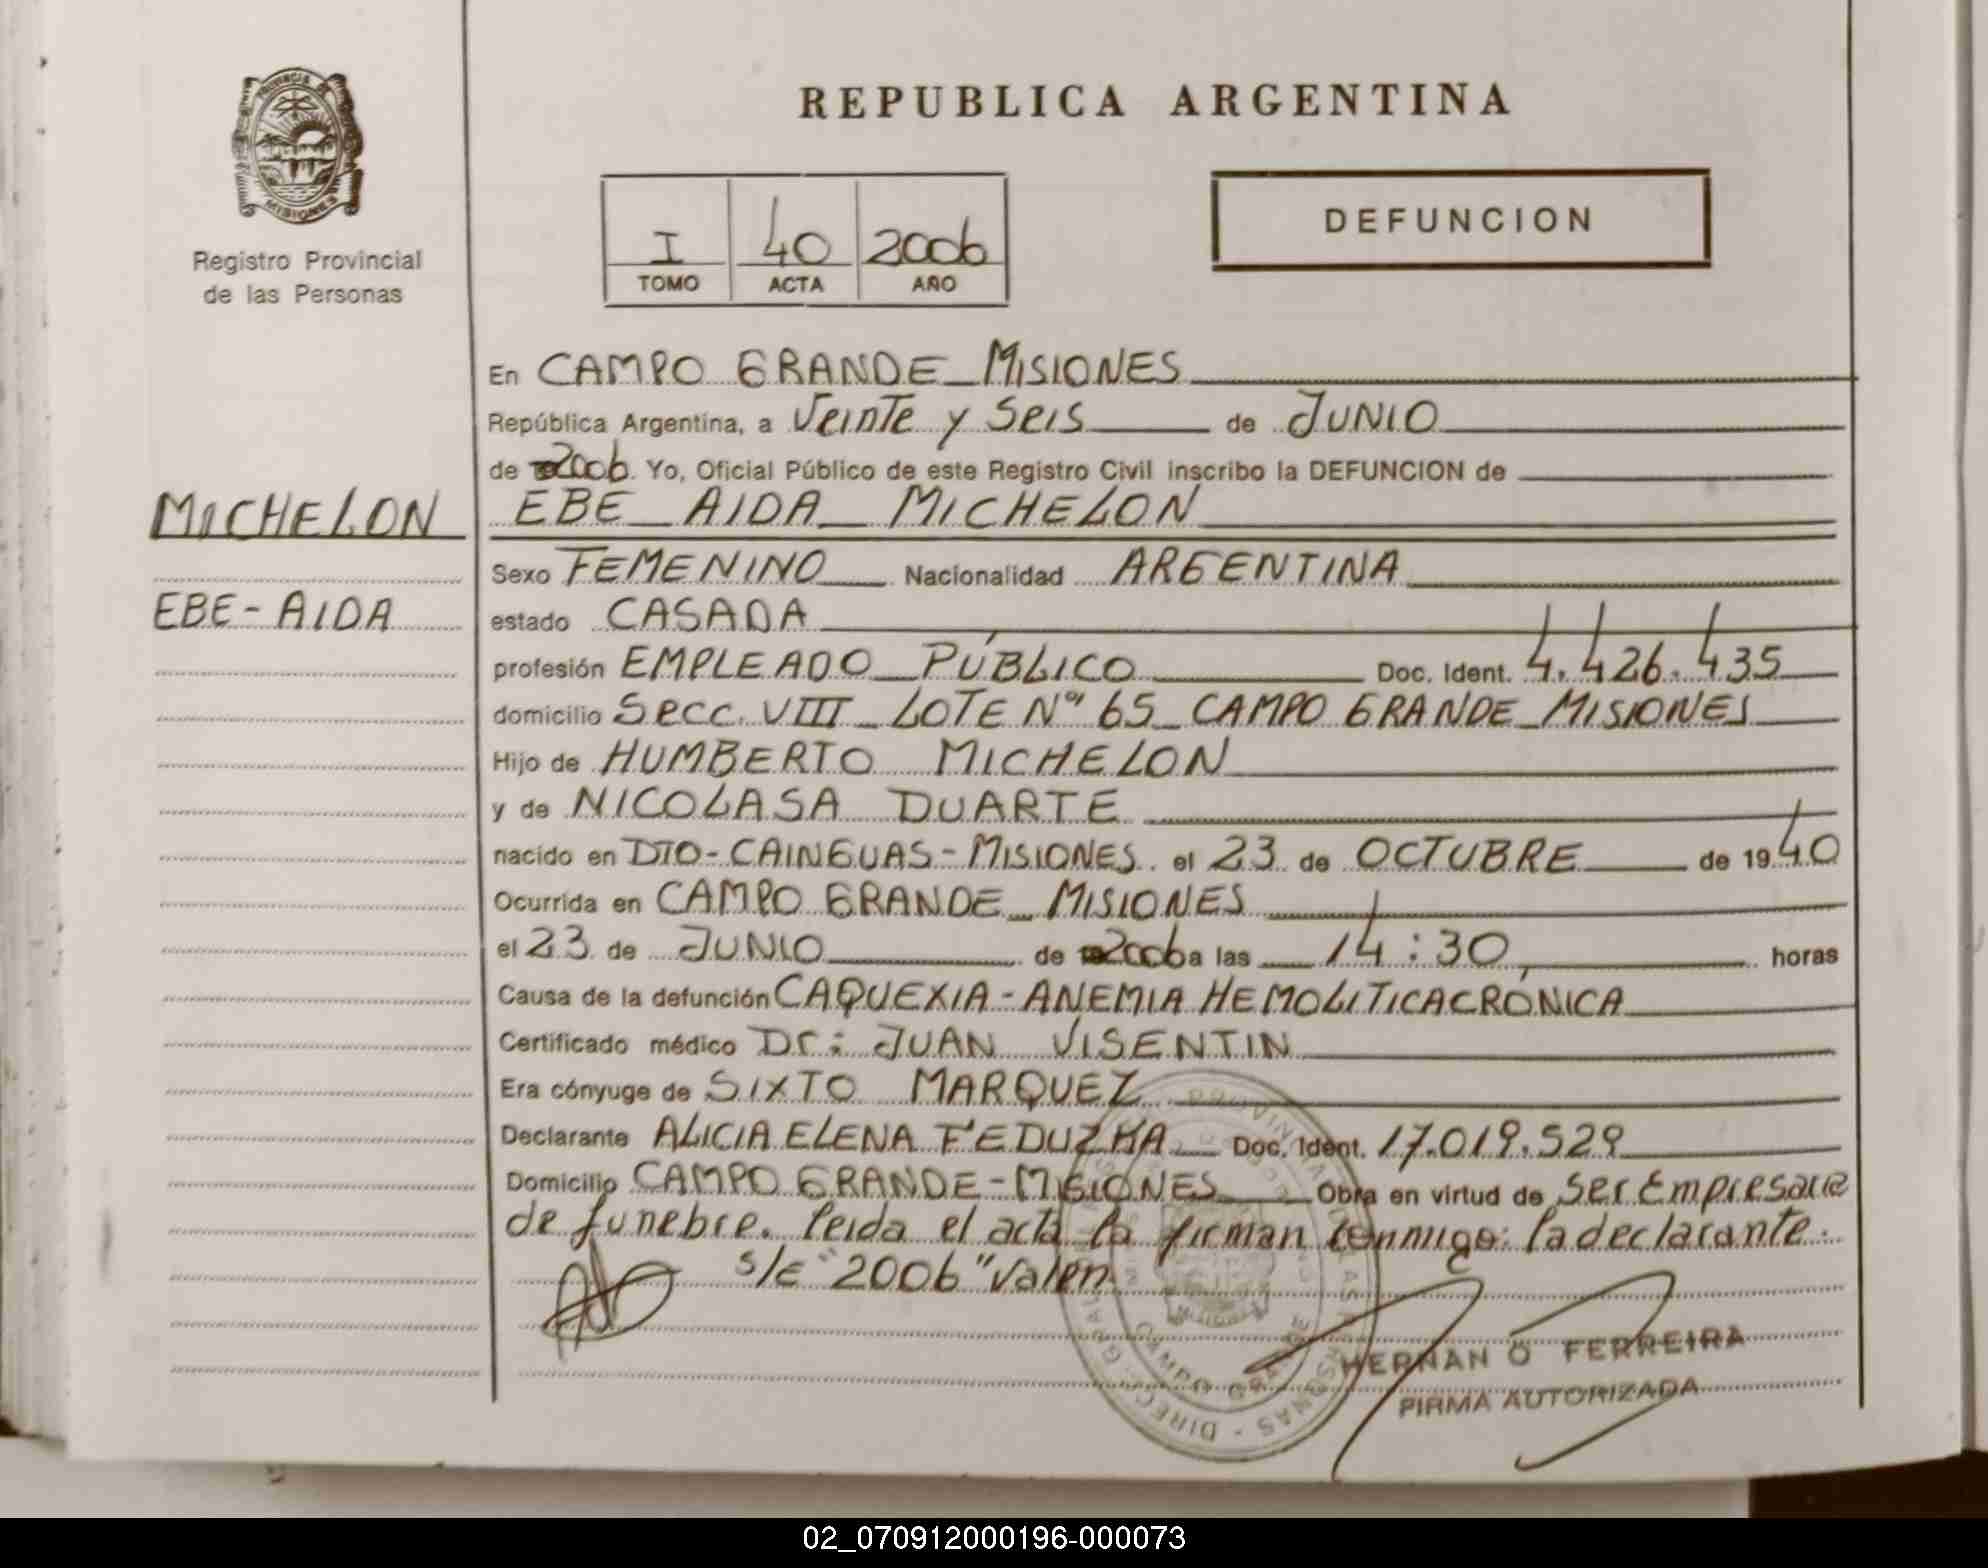 PROVINCIA DE
MISIONES
Registro Provincial
de las Personas
REPUBLICA ARGENTINA
I 40 2006
TOMO ACTA AÑO
DEFUNCION
En CAMPO GRANDE_MISIONES
República Argentina, a Veinte y Seis de JUNIO
de 2006. Yo, Oficial Público de este Registro Civil inscribo la DEFUNCION de
MICHELON
EBE-AIDA
EBE_AIDA_MICHELON
Sexo FEMENINO Nacionalidad ARGENTINA
estado CASADA
profesión EMPLEADO_PÚBLICO Doc. Ident. 4.426.435
domicilio Secc. VIII_LOTE Nº 65_CAMPO GRANDE_MISIONES
Hijo de HUMBERTO MICHELON
y de NICOLASA DUARTE
nacido en DTO-CAINGUAS-MISIONES. el 23 de OCTUBRE de 1940
Ocurrida en CAMPO GRANDE_MISIONES
el 23 de JUNIO de 2006 a las 14:30, horas
Causa de la defunción CAQUEXIA-ANEMIA HEMOLITICACRÓNICA
Certificado médico Dr: JUAN VISENTIN
Era cónyuge de SIXTO MARQUEZ
Declarante ALICIA ELENA FEDUZKA Doc. Ident. 17.019.529
Domicilio CAMPO GRANDE-MISIONES Obra en virtud de Ser Empresaria
de funebre. leida el acta la firman conmigo: la declarante.
s/e "2006" Valen
CAMPO GRANDE
HERNAN O FERREIRA
FIRMA AUTORIZADA
02_070912000196-000073